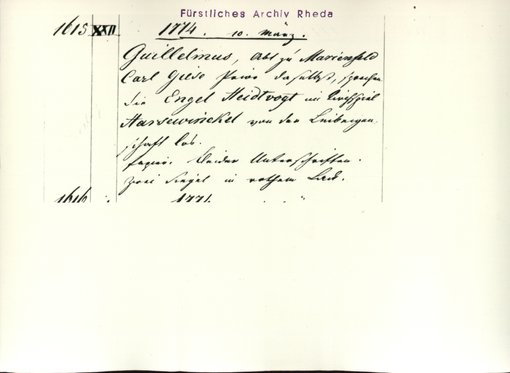 Fürstliches Archiv Rheda
1615 XXII. 1774. 10. März.
Guillelmus, Abt zu Marienfeld
Carl Giese Prior daselbst, sprechen
die Engel Heidtvogt im Kirchspiel
Harsewinckel von der Leibeigen
schaft los.
beider Unterschriften.
zwei Siegel in rothem Lack.
1616 1774